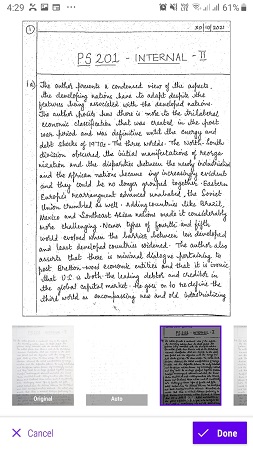 4:29
61%
1
30|10|2021
PS 201 - INTERNAL - II
1a) The author presents a condensed view of the aspects,
the developing nations have to adapt despite the
features being associated with the developed nations.
The author posits how there is more to the trilateral
economic classification that was created in the post
war period and was definitive until the energy and
debt shocks of 1970s. The three worlds. The North-South
division obscured the initial manifestations of reorga
nization and the disparities between the newly industrialise
and the African nations became ing increasingly evident
and they could be no longer grouped together. Eastern
Europe's rearrangement advanced unabated, the Soviet
Union crumbled as well. Adding countries like Brazil,
Mexico and Southeast Asian nations made it considerably
more challenging. Newer types of fourth and fifth
world evolved when the barriers between less developed
and least developed countries widened. The author also
asserts that there is minimal dialogue pertaining to
post Bretton-wood economic entities and that it is ironic
that U.S is both the leading debtor and creditor in
the global capital market. He goes on to redefine the
third world as encompassing new and old industrializing
Original
Auto
Cancel
Done